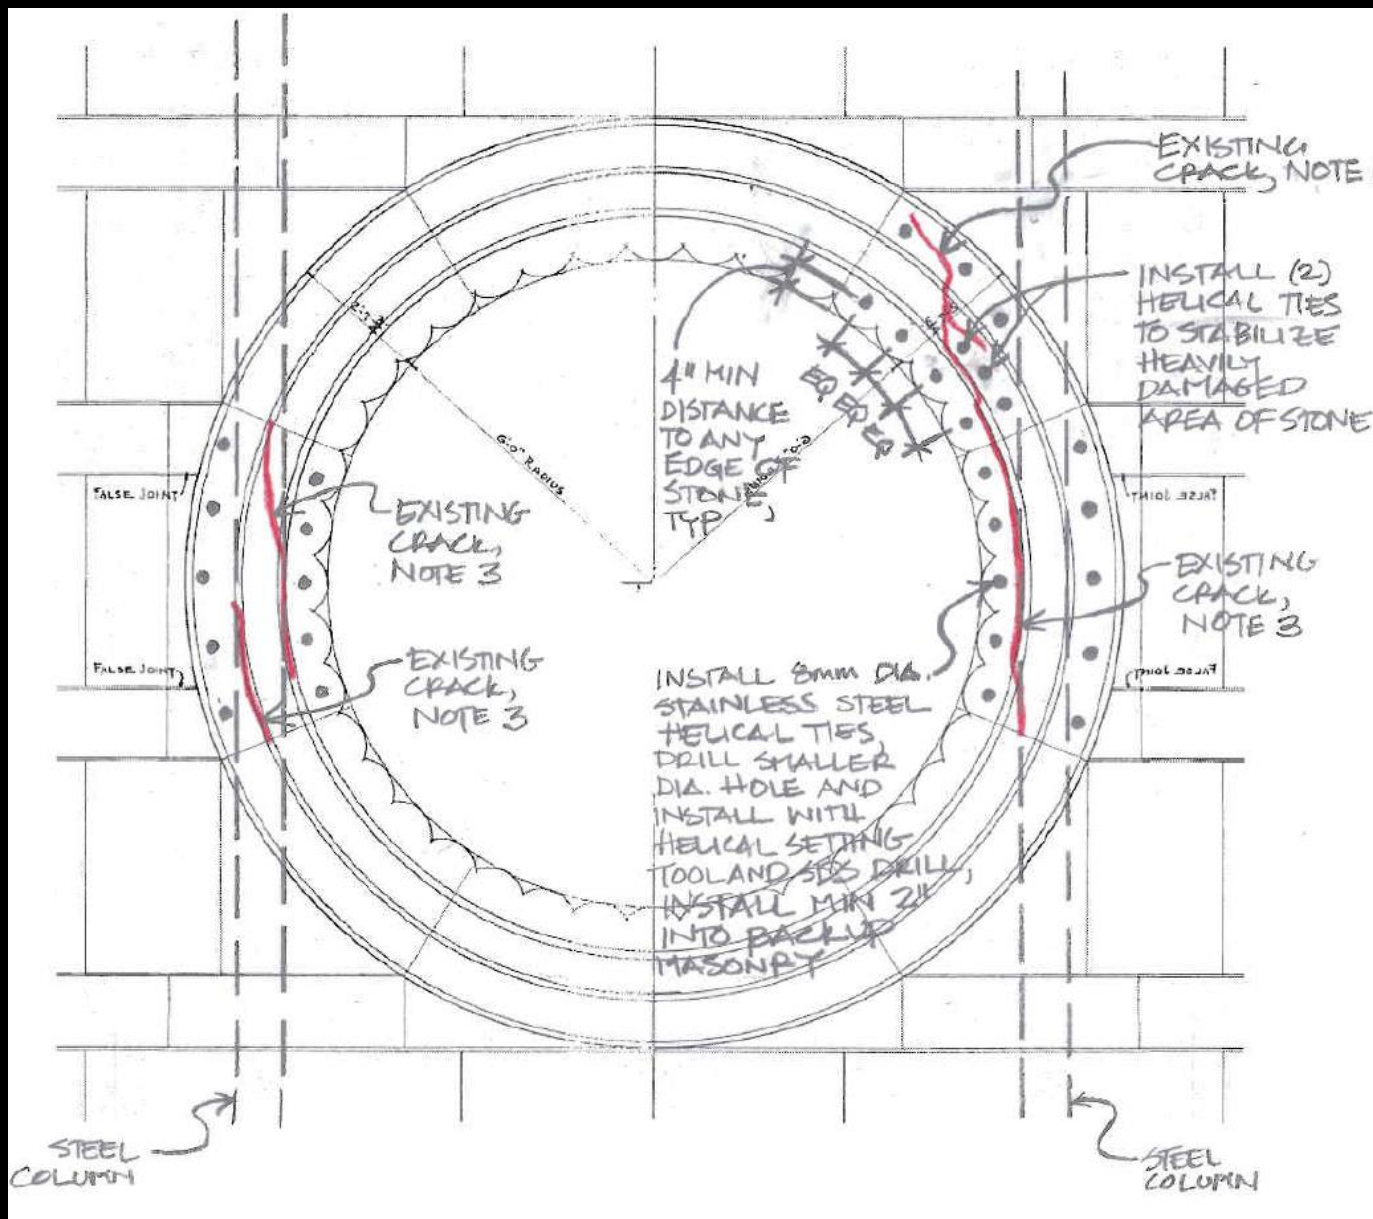 EXISTING
CRACK, NOTE
INSTALL (2)
HELICAL TIES
TO STABILIZE
HEAVILY
DAMAGED
AREA OF STONE
4" MIN
DISTANCE
TO ANY
EDGE OF
STONE,
TYP
EQ EQ EQ
6'-0" RADIUS
FALSE JOINT
FALSE JOINT
EXISTING
CRACK,
NOTE 3
FALSE JOINT
EXISTING
CRACK,
NOTE 3
FALSE JOINT
EXISTING
CRACK,
NOTE 3
INSTALL 8mm DIA.
STAINLESS STEEL
HELICAL TIES,
DRILL SMALLER
DIA. HOLE AND
INSTALL WITH
HELICAL SETTING
TOOL AND SDS DRILL,
INSTALL MIN 2"
INTO BACKUP
MASONRY
STEEL
COLUMN
STEEL
COLUMN